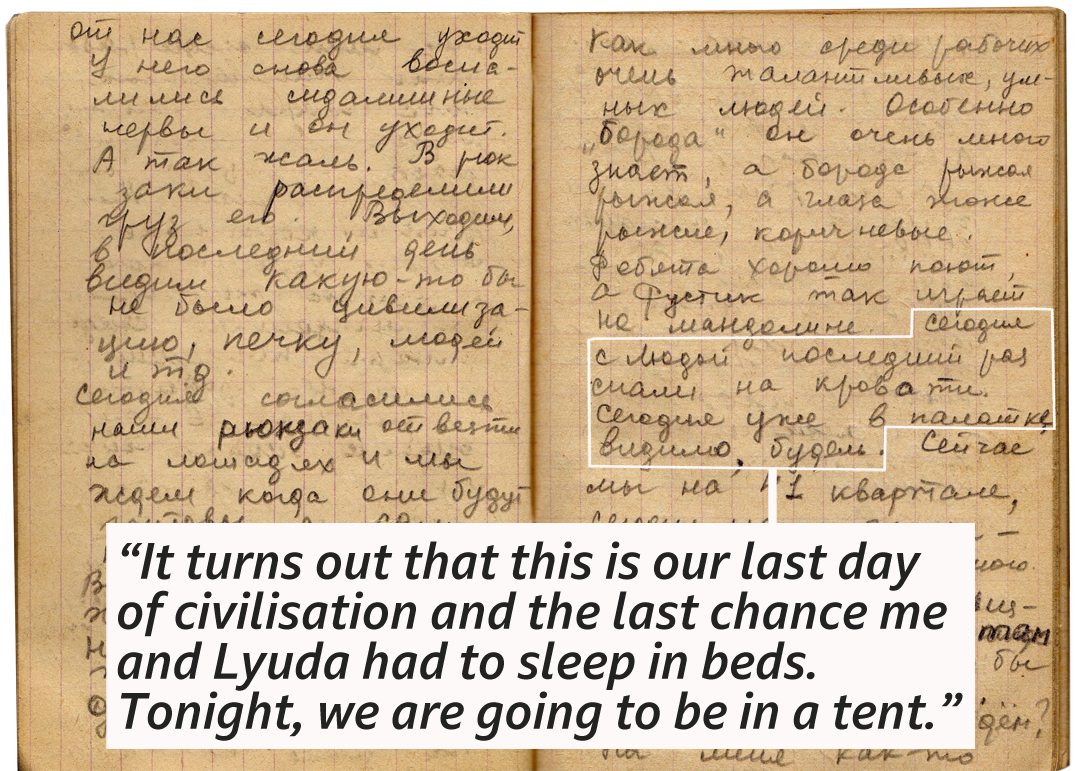 от нас сегодня уходит
У него снова воспа-
лились седалишные
нервы и он уходит.
А так жаль. В рюк
заки распределили
груз его. Выходим,
в последний день
видим какую-то бы
не было цивилиза-
цию, печку, людей
и тд.
Сегодня согласились
наши рюкзаки отвезти
на лошадях и мы
ждем когда они будут
Как много среди рабочих
очень талантливых, ум-
ных людей. Особенно
„борода“ он очень много
знает, а борода рыжая
рыжая, а глаза тоже
рыжие, коричневые.
Ребята хорошо поют,
а Рустик так играет
на мандолине. Сегодня
с Людой последний раз
спали на кровати.
Сегодня уже в палатке
видимо, будем. Сейчас
мы на 41 квартале,
там
бы
как-то
“It turns out that this is our last day
of civilisation and the last chance me
and Lyuda had to sleep in beds.
Tonight, we are going to be in a tent.”